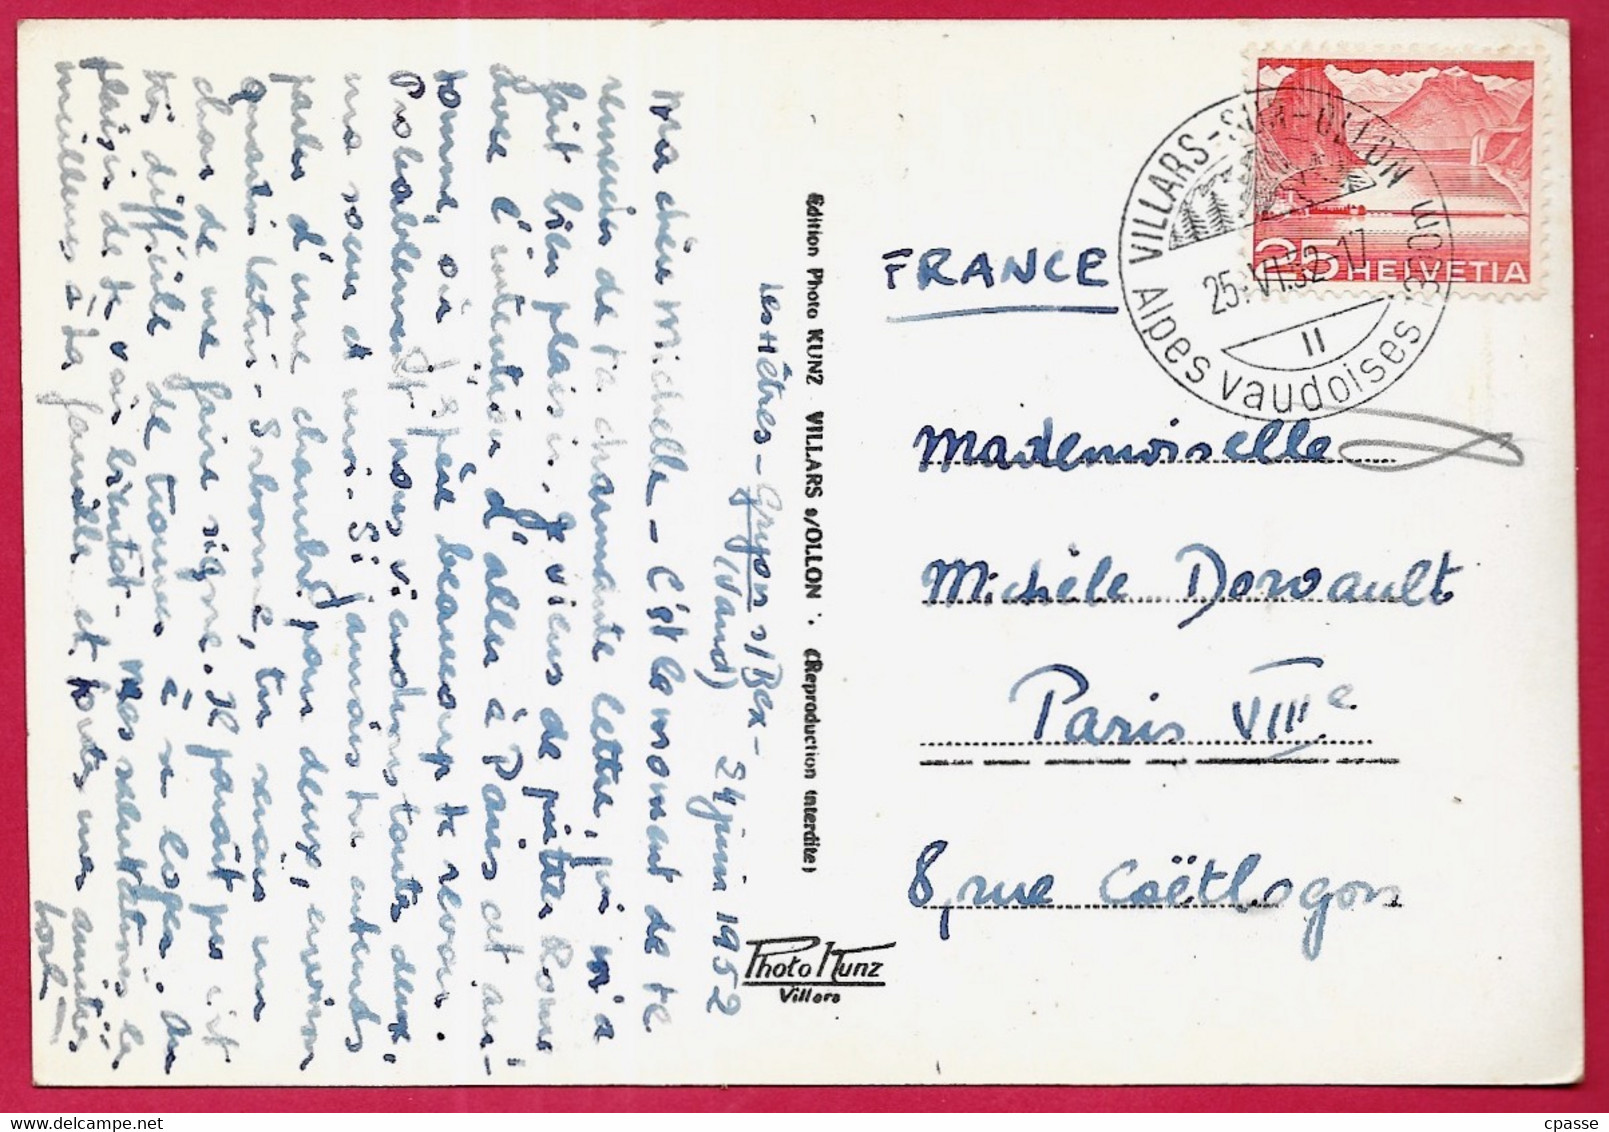 les Hêtres - Gryon s/Bex -
(Vaud) 24 juin 1952
Ma chère Michelle - C'est le moment de te
remercier de ta charmante lettre, qui m'a
fait bien plaisir. Je viens de quitter Rome
avec l'intention d'aller à Paris cet au-
tomne, où j'espère beaucoup te revoir.
Probablement nous viendrons toutes deux,
ma sœur et moi. Si jamais tu entends
parler d'une chambre pour deux, environ
quartier latin - Sorbonne, tu serais un
chou de me faire signe. Il paraît que c'est
très difficile de trouver à se loger. Au
plaisir de te voir bientôt - Mes salutations les
meilleures à ta famille et toutes mes amitiés
Édition Photo KUNZ VILLARS s/OLLON (Reproduction interdite)
Photo Kunz
Villars
FRANCE
VILLARS-SUR-OLLON
25.VI.52-17
II
Alpes vaudoises 350m
25 HELVETIA
Mademoiselle
Michèle Dorvault
Paris VIIIe
8, rue Coëtlogon
cpasse